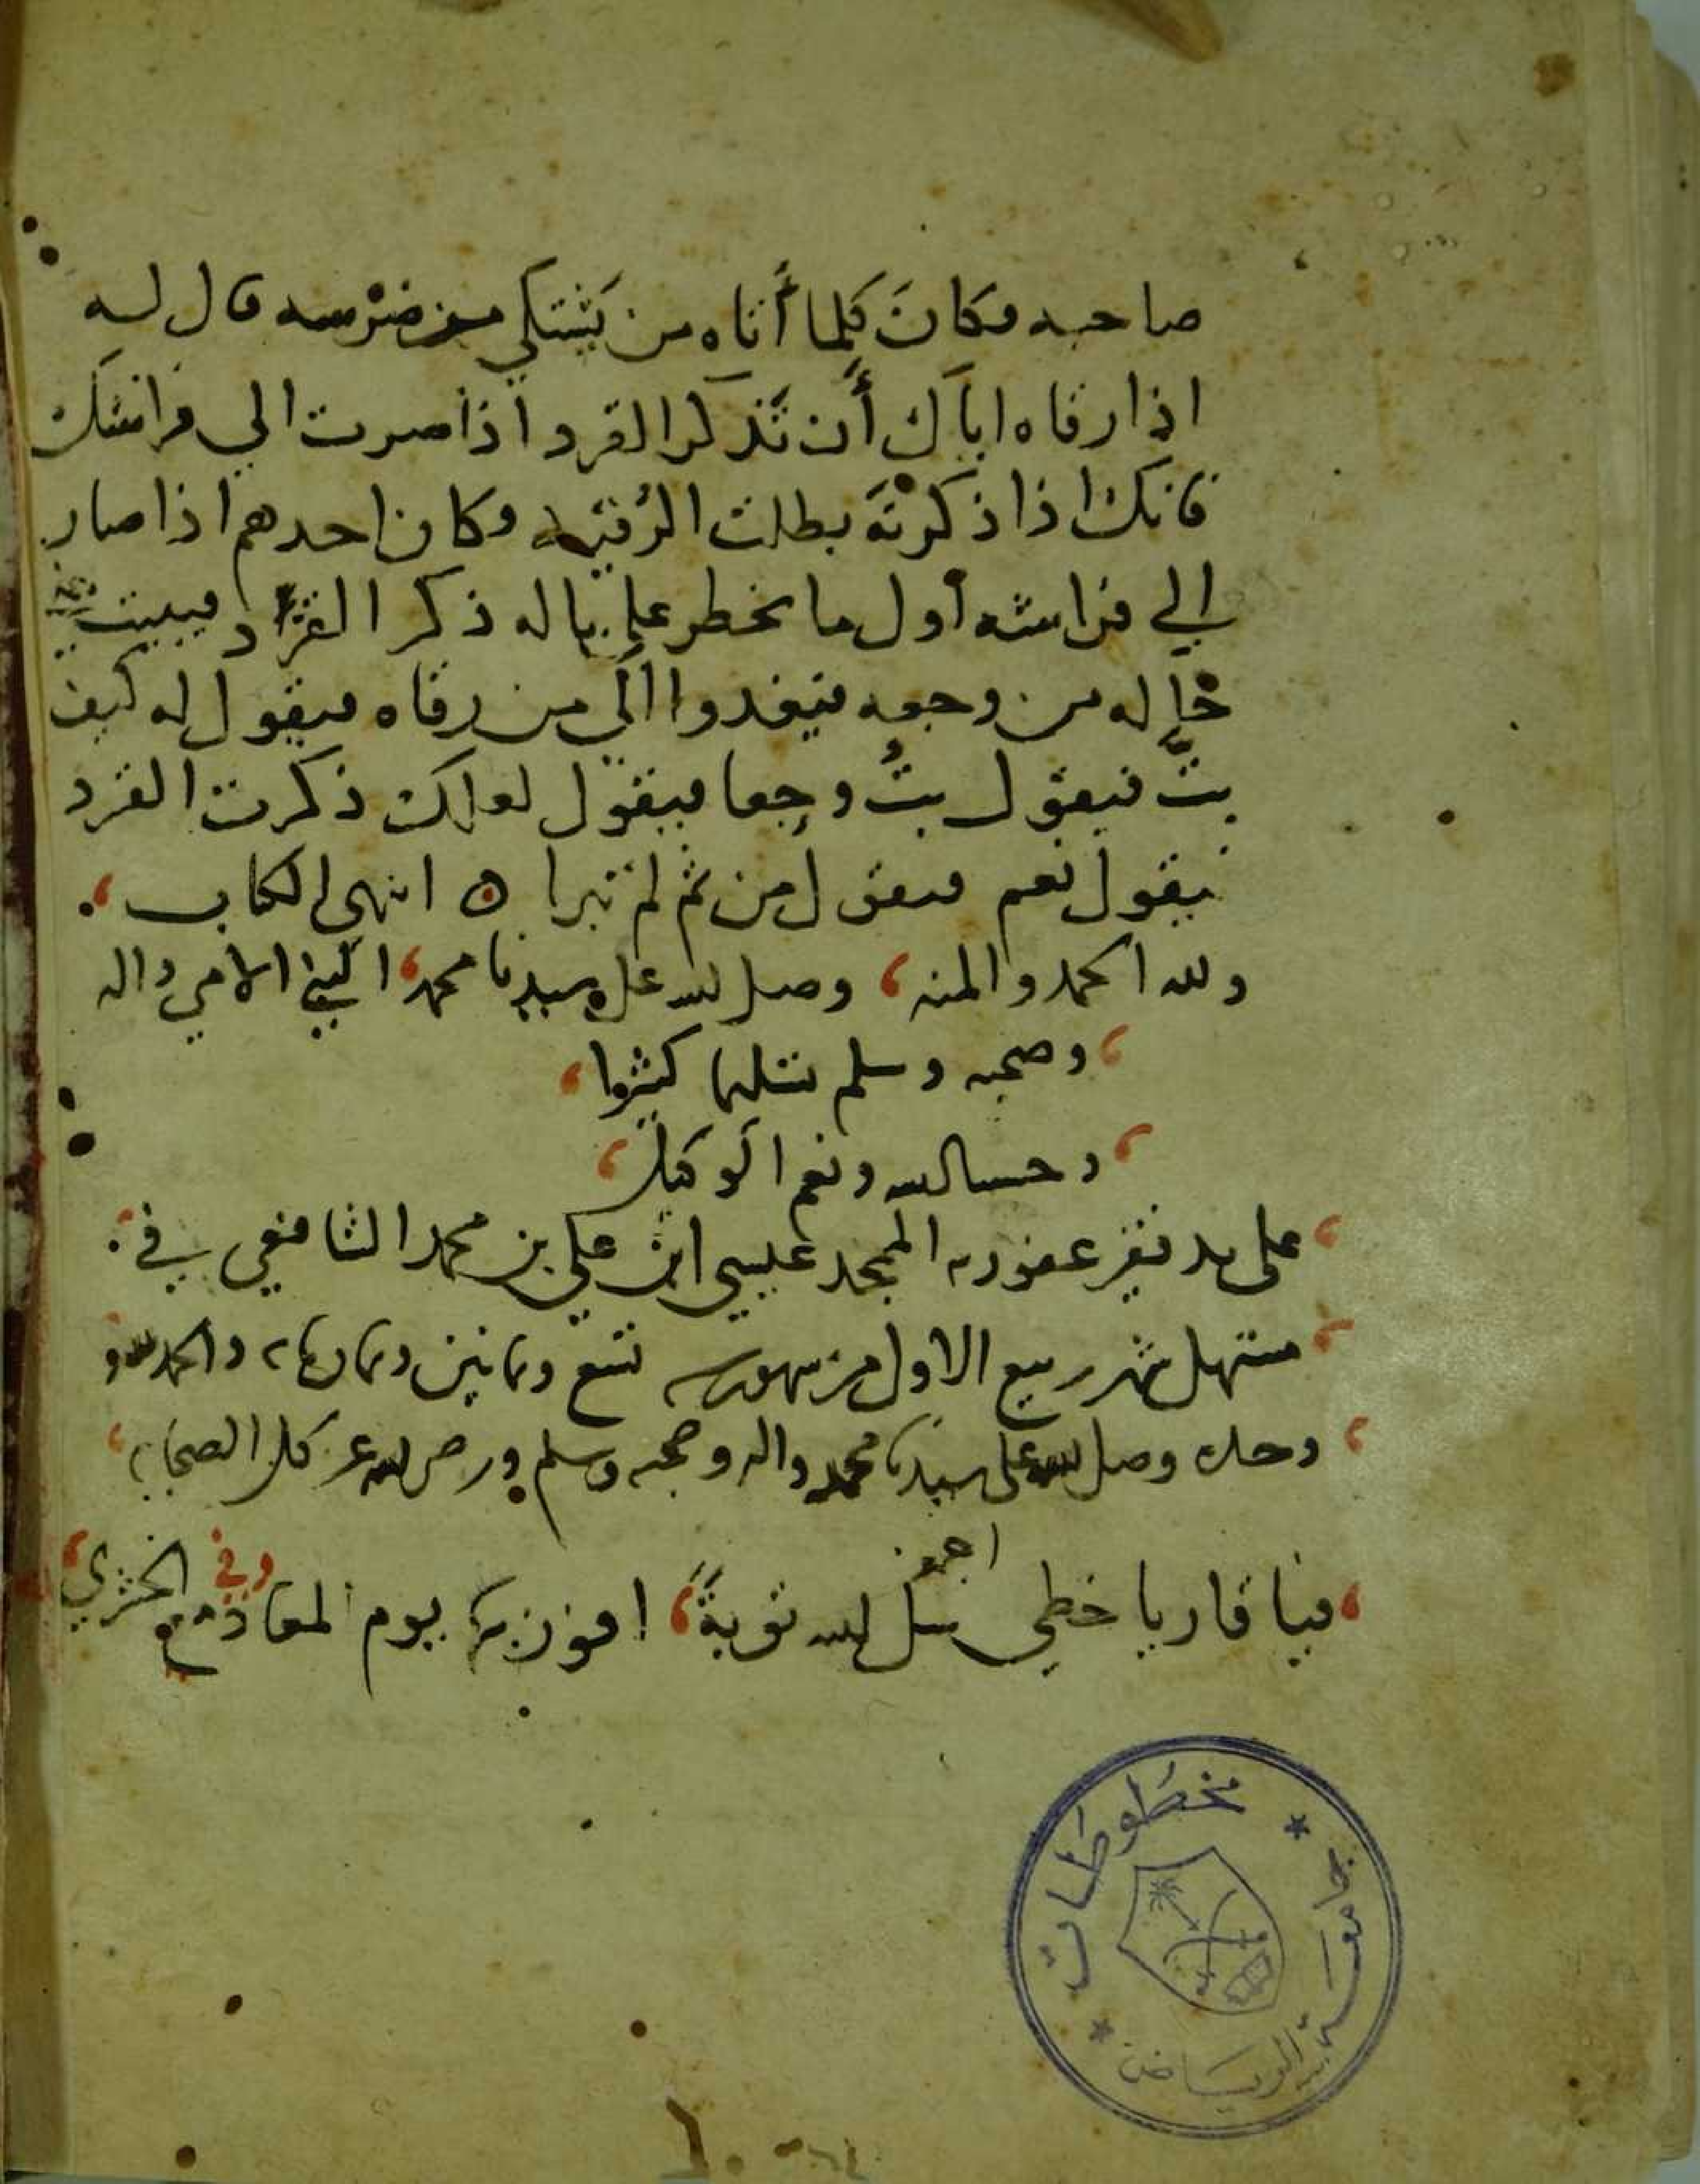 صاحبه فكانَ كلما أتاه من يَشتكي من ضرْسه قال له
اذا رقاه اياك أن تَذكر القرد اذا صرت الي فراشك
فانك اذا ذكرْتَه بطلت الرُقيه وكان احدهم اذا صار
الي فراشه أول ما يخطر علي باله ذكر القرد فيبيت
حاله من وجعه فيغدوا الي من رقاه فيقول له كيف
بتَّ فيقول بتُ وجِعا فيقول لعلك ذكرت القرد
فيقول نعم فيقول من ثم لم تبرا ه انتهي الكتاب
ولله الحمد والمنه، وصلى الله على سيدنا محمد، النبي الامي واله
، وصحبه وسلم تسليما كثيرا ،
، وحسبنا الله ونعم الوكيل ،
، على يد فقير عفو ربه الممجد عيسي ابن علي بن محمد الشافعي في
، مستهل شهر ربيع الاول من شهور سنه تسع وثمانين وثمان مايه، والحمد لله
، وحده وصلى الله على سيدنا محمد واله وصحبه وسلم ورضي الله عن كل الصحابه
اجمعين
، فيا قاريا خطي سل الله توبةً، افوز بها يوم المعاد
وفي الحشر ،
مخطوطات
جامعة الرياض